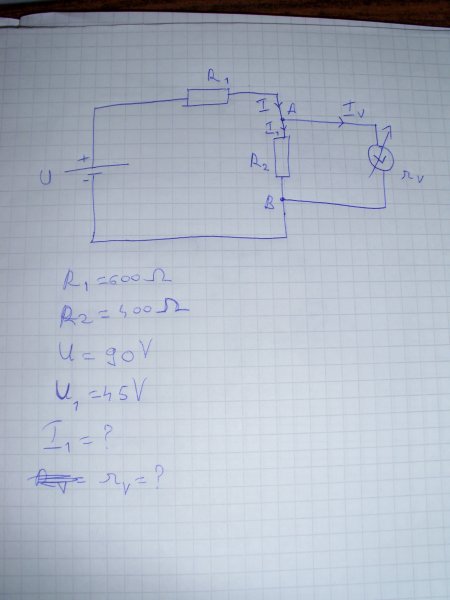 R1
I A IV
I1
+
U -
R2
V rV
B
R1 = 600 Ω
R2 = 400 Ω
U = 90 V
U1 = 45 V
I1 = ?
= rV = ?